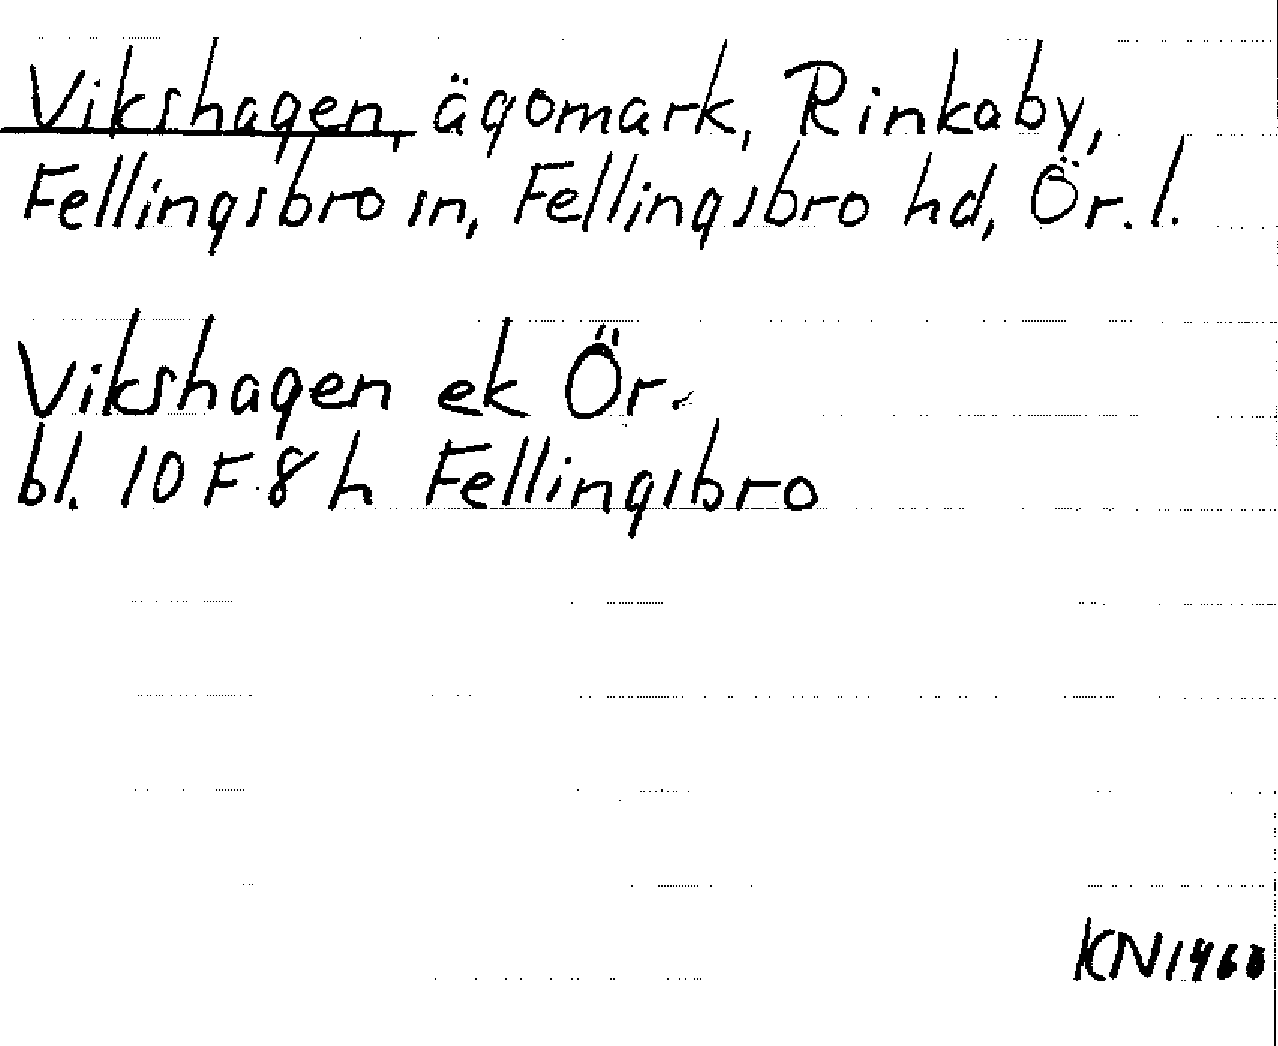 Vikshagen, ägomark, Rinkaby,
Fellingsbro sn, Fellingsbro hd, Ör. l.
Vikshagen ek Ör.
bl. 10 F 8 h Fellingsbro